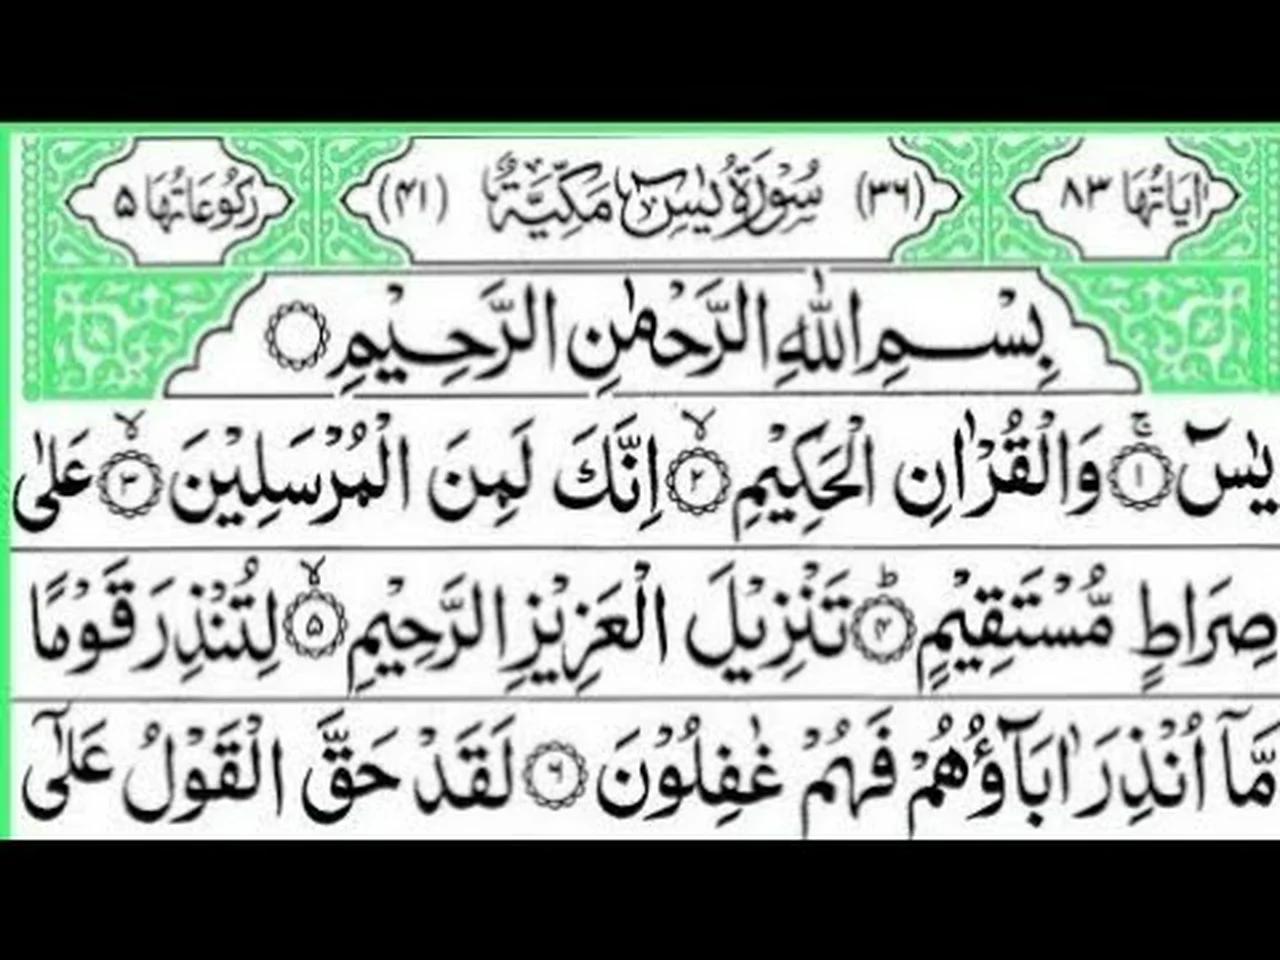 اٰيَاتُهَا ٨٣ (٣٦) سُوْرَةُ يٰسٓ مَكِّيَّةٌ (٤١) رَكُوْعَاتُهَا ۵
بِسْمِ اللّٰهِ الرَّحْمٰنِ الرَّحِيْمِ
يٰسٓ ۚ﴿۱﴾ وَالْقُرْاٰنِ الْحَكِيْمِ ۙ﴿۲﴾ اِنَّكَ لَمِنَ الْمُرْسَلِيْنَ ۙ﴿۳﴾ عَلٰى
صِرَاطٍ مُّسْتَقِيْمٍ ؕ﴿۴﴾ تَنْزِيْلَ الْعَزِيْزِ الرَّحِيْمِ ۙ﴿۵﴾ لِتُنْذِرَ قَوْمًا
مَّاۤ اُنْذِرَ اٰبَآؤُهُمْ فَهُمْ غٰفِلُوْنَ ﴿۶﴾ لَقَدْ حَقَّ الْقَوْلُ عَلٰۤى